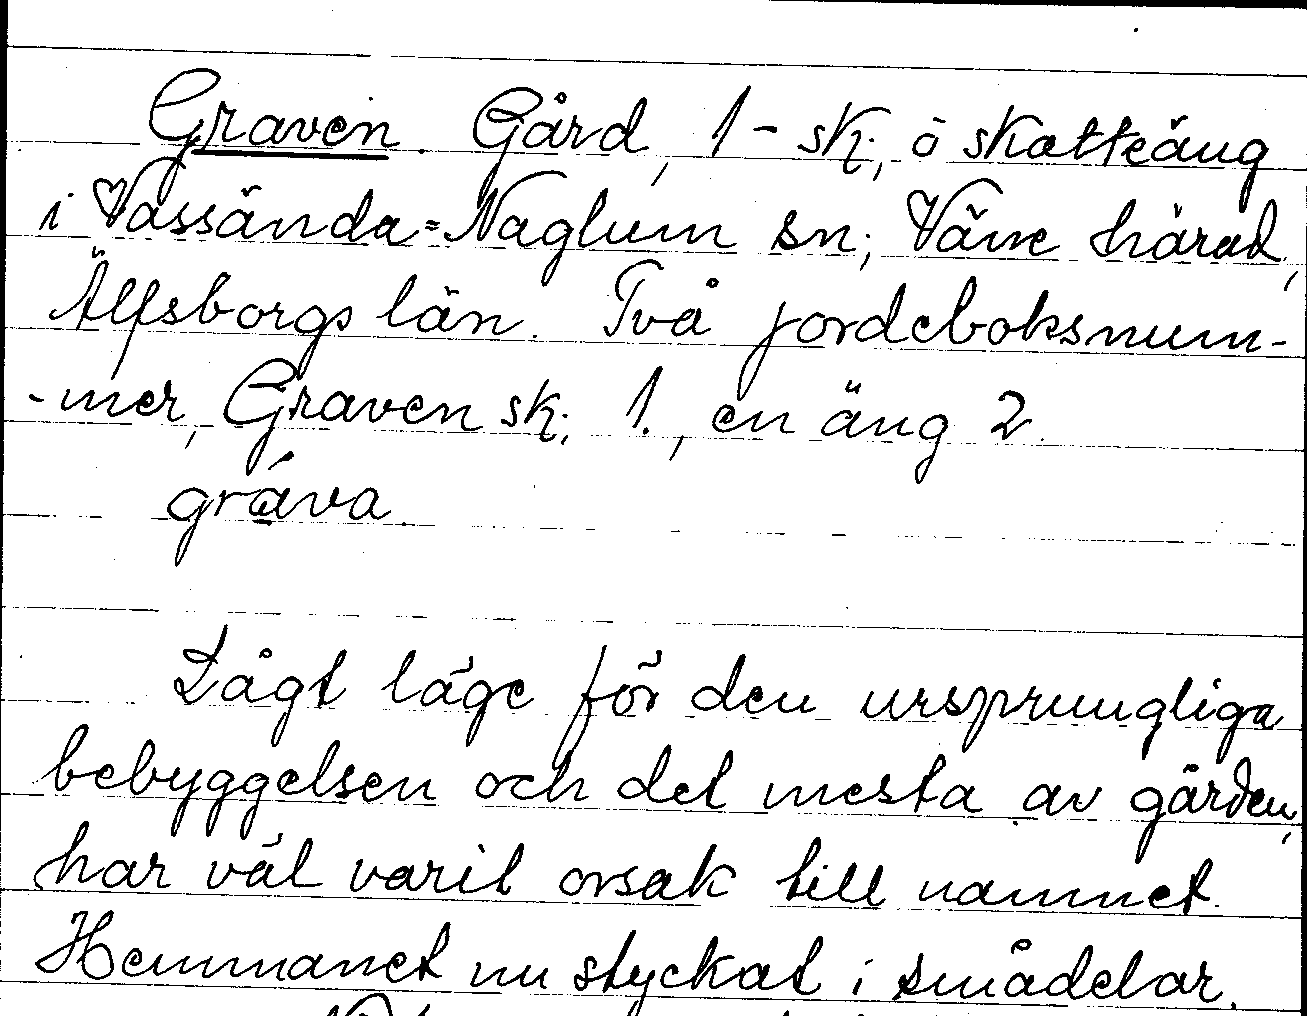 Graven. Gård, 1 - sk; ö skatteäng
i Vassända=Naglum sn; Väne härad,
Älfsborgs län. Två jordeboksnum-
-mer, Graven sk; 1., en äng 2.
gráva.
Lågt läge för den ursprungliga
bebyggelsen och det mesta av gården,
har väl varit orsak till namnet.
Hemmanet nu styckat i smådelar.